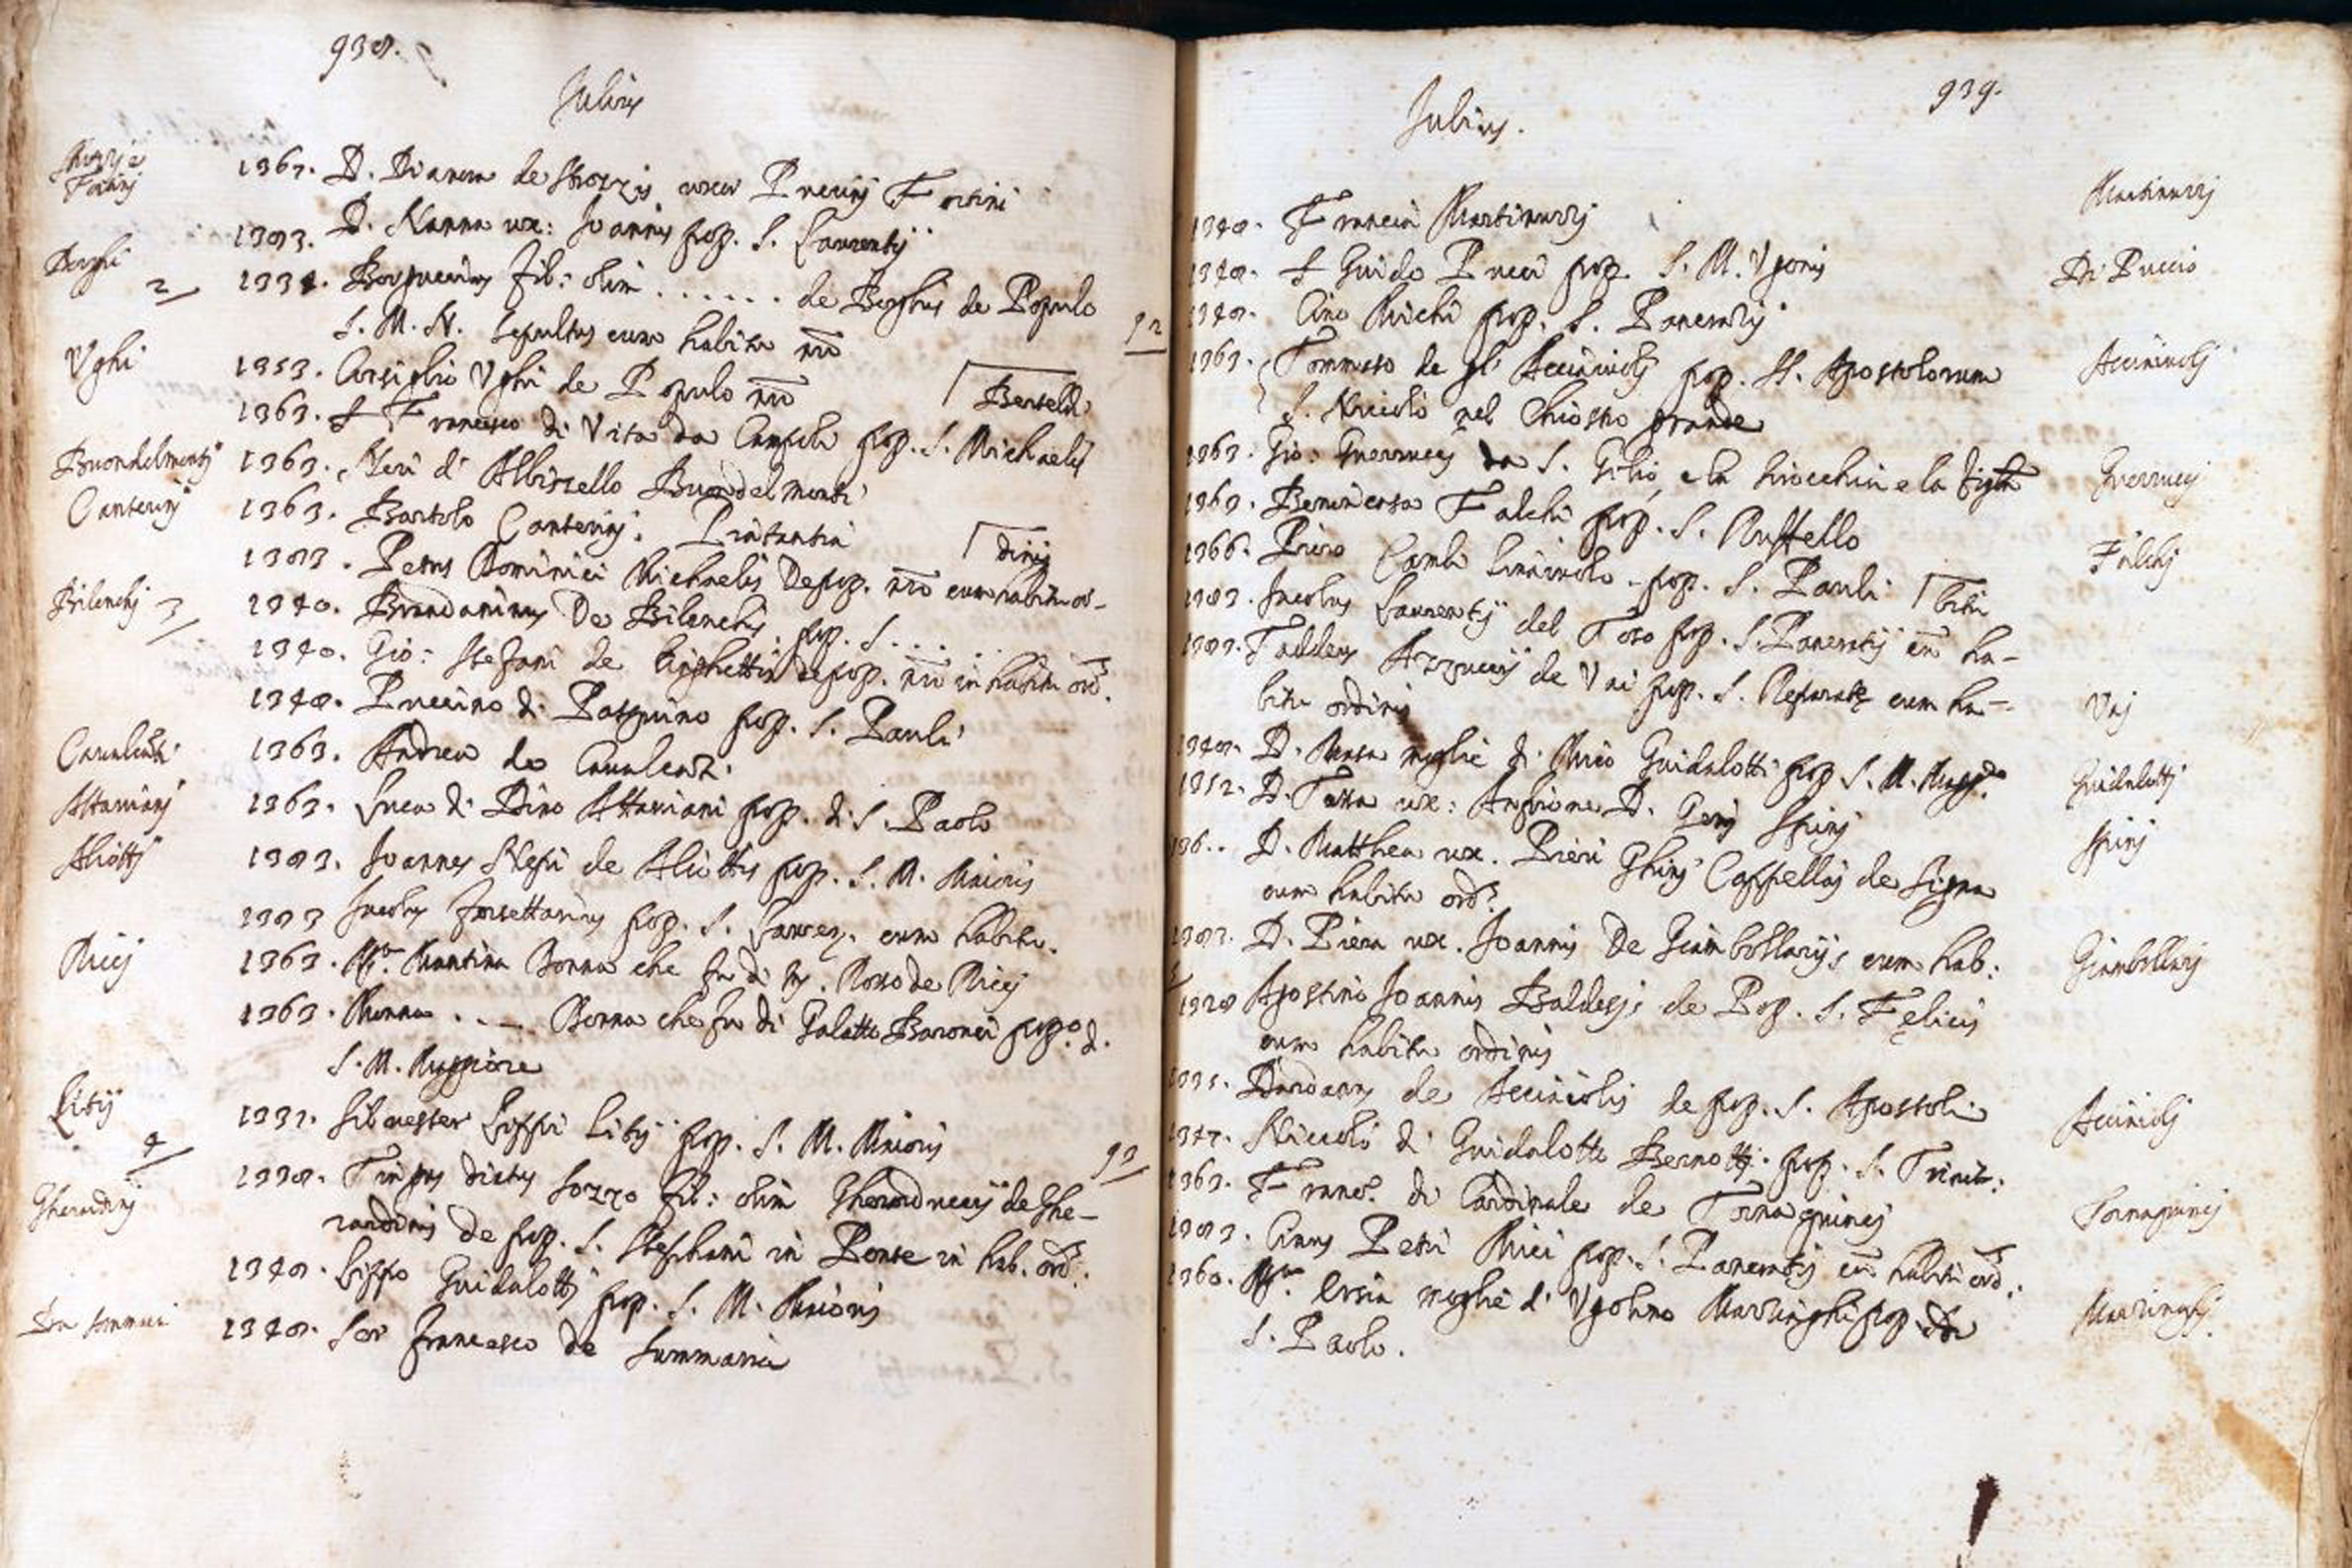 938.
Julius
Fortini
1367. D. Dianem de Strozzis uxor Puccinj Fortini
1383. D. Nanna ux: Joannis pop. S. Laurentij
Berghi
2
133 . filː olim . . . . . . de Berghis de Populo
S. M. N. sepultus cum habitu nro
Ughi
1353. Corsiglio Ughi de Populo nro
Berteldi
1363. S Francesco di Vita da Campoli pop. S. Michaelis
Buondelmontj
1363. Neri di Albizzello Buondelmonti
Canterinj
1363. Bartolo Canterinj.
dinis
1383. Petrus Dominici Michaelis De pop. nro cum habitu or-
Bilenchj
3
1340. Brandaninus De Bilenchis pop. S. . . .
1340. Gio: Stefani de Linghettis de pop. nro in habitu ord.
1348. Puccino di Patguino pop. S. Pauli
Cavalcanti
1363. Andrea de Cavalcanti.
Attavianj
1363. Luca di Dino Attaviani pop. di S. Paolo
Aliottj
1383. Joannes Neri de Aliottis pop. S. M. Maioris
1383 Jacobus Forsettarius pop. S. Lauren. cum habitu.
Ricij
1363. Mª. Mantina Donna che fu di M. Rosso de Ricej
1363. Monna . . . . Donna che fu di Galatto Baronci popº. d.
S. M. Maggiore
Litij
4
1337. Silvester Lippi Litij pop. S. M. Maioris
Gherardinj
1338. Tingus dictus Sozzo fil: olim Gherarduccij de Ghe-
rardinis de pop. S. Stephani in Ponte in hab. ord.:
1348. Lippo Guidalotti pop. S. M. Maioris
Da Sommaia
1348. Ser Francesco de Summaria
939.
Julius.
Martinuzzj
1348. Francia Martinuzzj
Di Puccio
1348. S Guido Pucci pop. S. M. Ugonis
12
1348. Cino Michi pop. S. Pancratij
Acciaiuolj
1363. Tommaso de gl' Acciaiuolj pop. SS. Apostolorum
S. Niccolò nel Chiostro grande
Guerruccj
1363. Gio: Guerruccj da S. Gilio, e la Sirocchia e la figlia
Falchj
1363. Benincasa Falchi pop. S. Ruffello
1366. Piero Cambi pop. S. Pauli
bitu
1383. Jacobus Laurentij del Toso pop. S. Pancratij cum ha-
Vaj
1383. Taddeus Azzuccij de Vai pop. S. Reparatę cum ha-
bitu ordinis
Guidalottj
1348. D. moglie di Mico Guidalotti pop S. M. Magg.
Spinj
1352. D. Tessa ux: Anfrione D. Gerij Spinj
136.. D. Matthea ux. Pieri Ghinj Cappellaj de Signa
cum habitu ord?
Giambollarij
138 . D. Piera ux. Joannis De Giambollarijs cum hab:
5
1328 Agostino Joannis Baldesj de Pop. S. Felicis
cum habitu ordinis
Acciaiolj
1335. Dardanus de Acciaiolis de pop. S. Apostoli
13
1347. Niccolò di Guidalotto Bernottj. pop. S. Trinit:
Tornaquincj
1363. Franc. di Cardinale de Tornaquincj
1383. Cinus Petri Mici pop. S. Pancratij cum habitu ord.:
Marringhj
1360. Mª. Orsia moglie di Ugolino Marringhi pop di
S. Paolo.